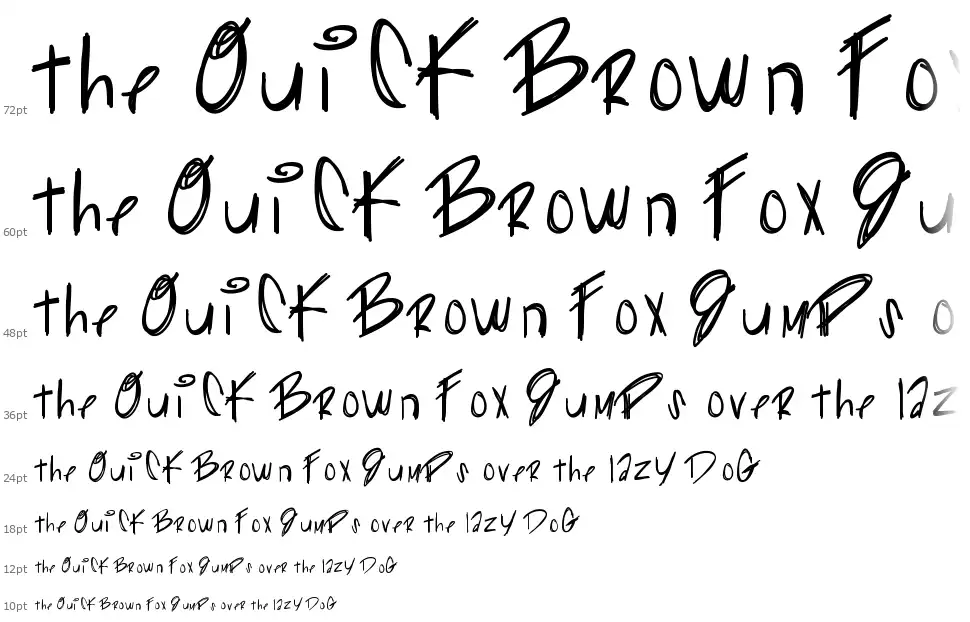 72pt the Quick Brown Fo
60pt the Quick Brown Fox Ju
48pt the Quick Brown Fox Jumps o
36pt the Quick Brown Fox Jumps over the laz
24pt the Quick Brown Fox Jumps over the lazy Dog
18pt the Quick Brown Fox Jumps over the lazy Dog
12pt the Quick Brown Fox Jumps over the lazy Dog
10pt the Quick Brown Fox Jumps over the lazy Dog